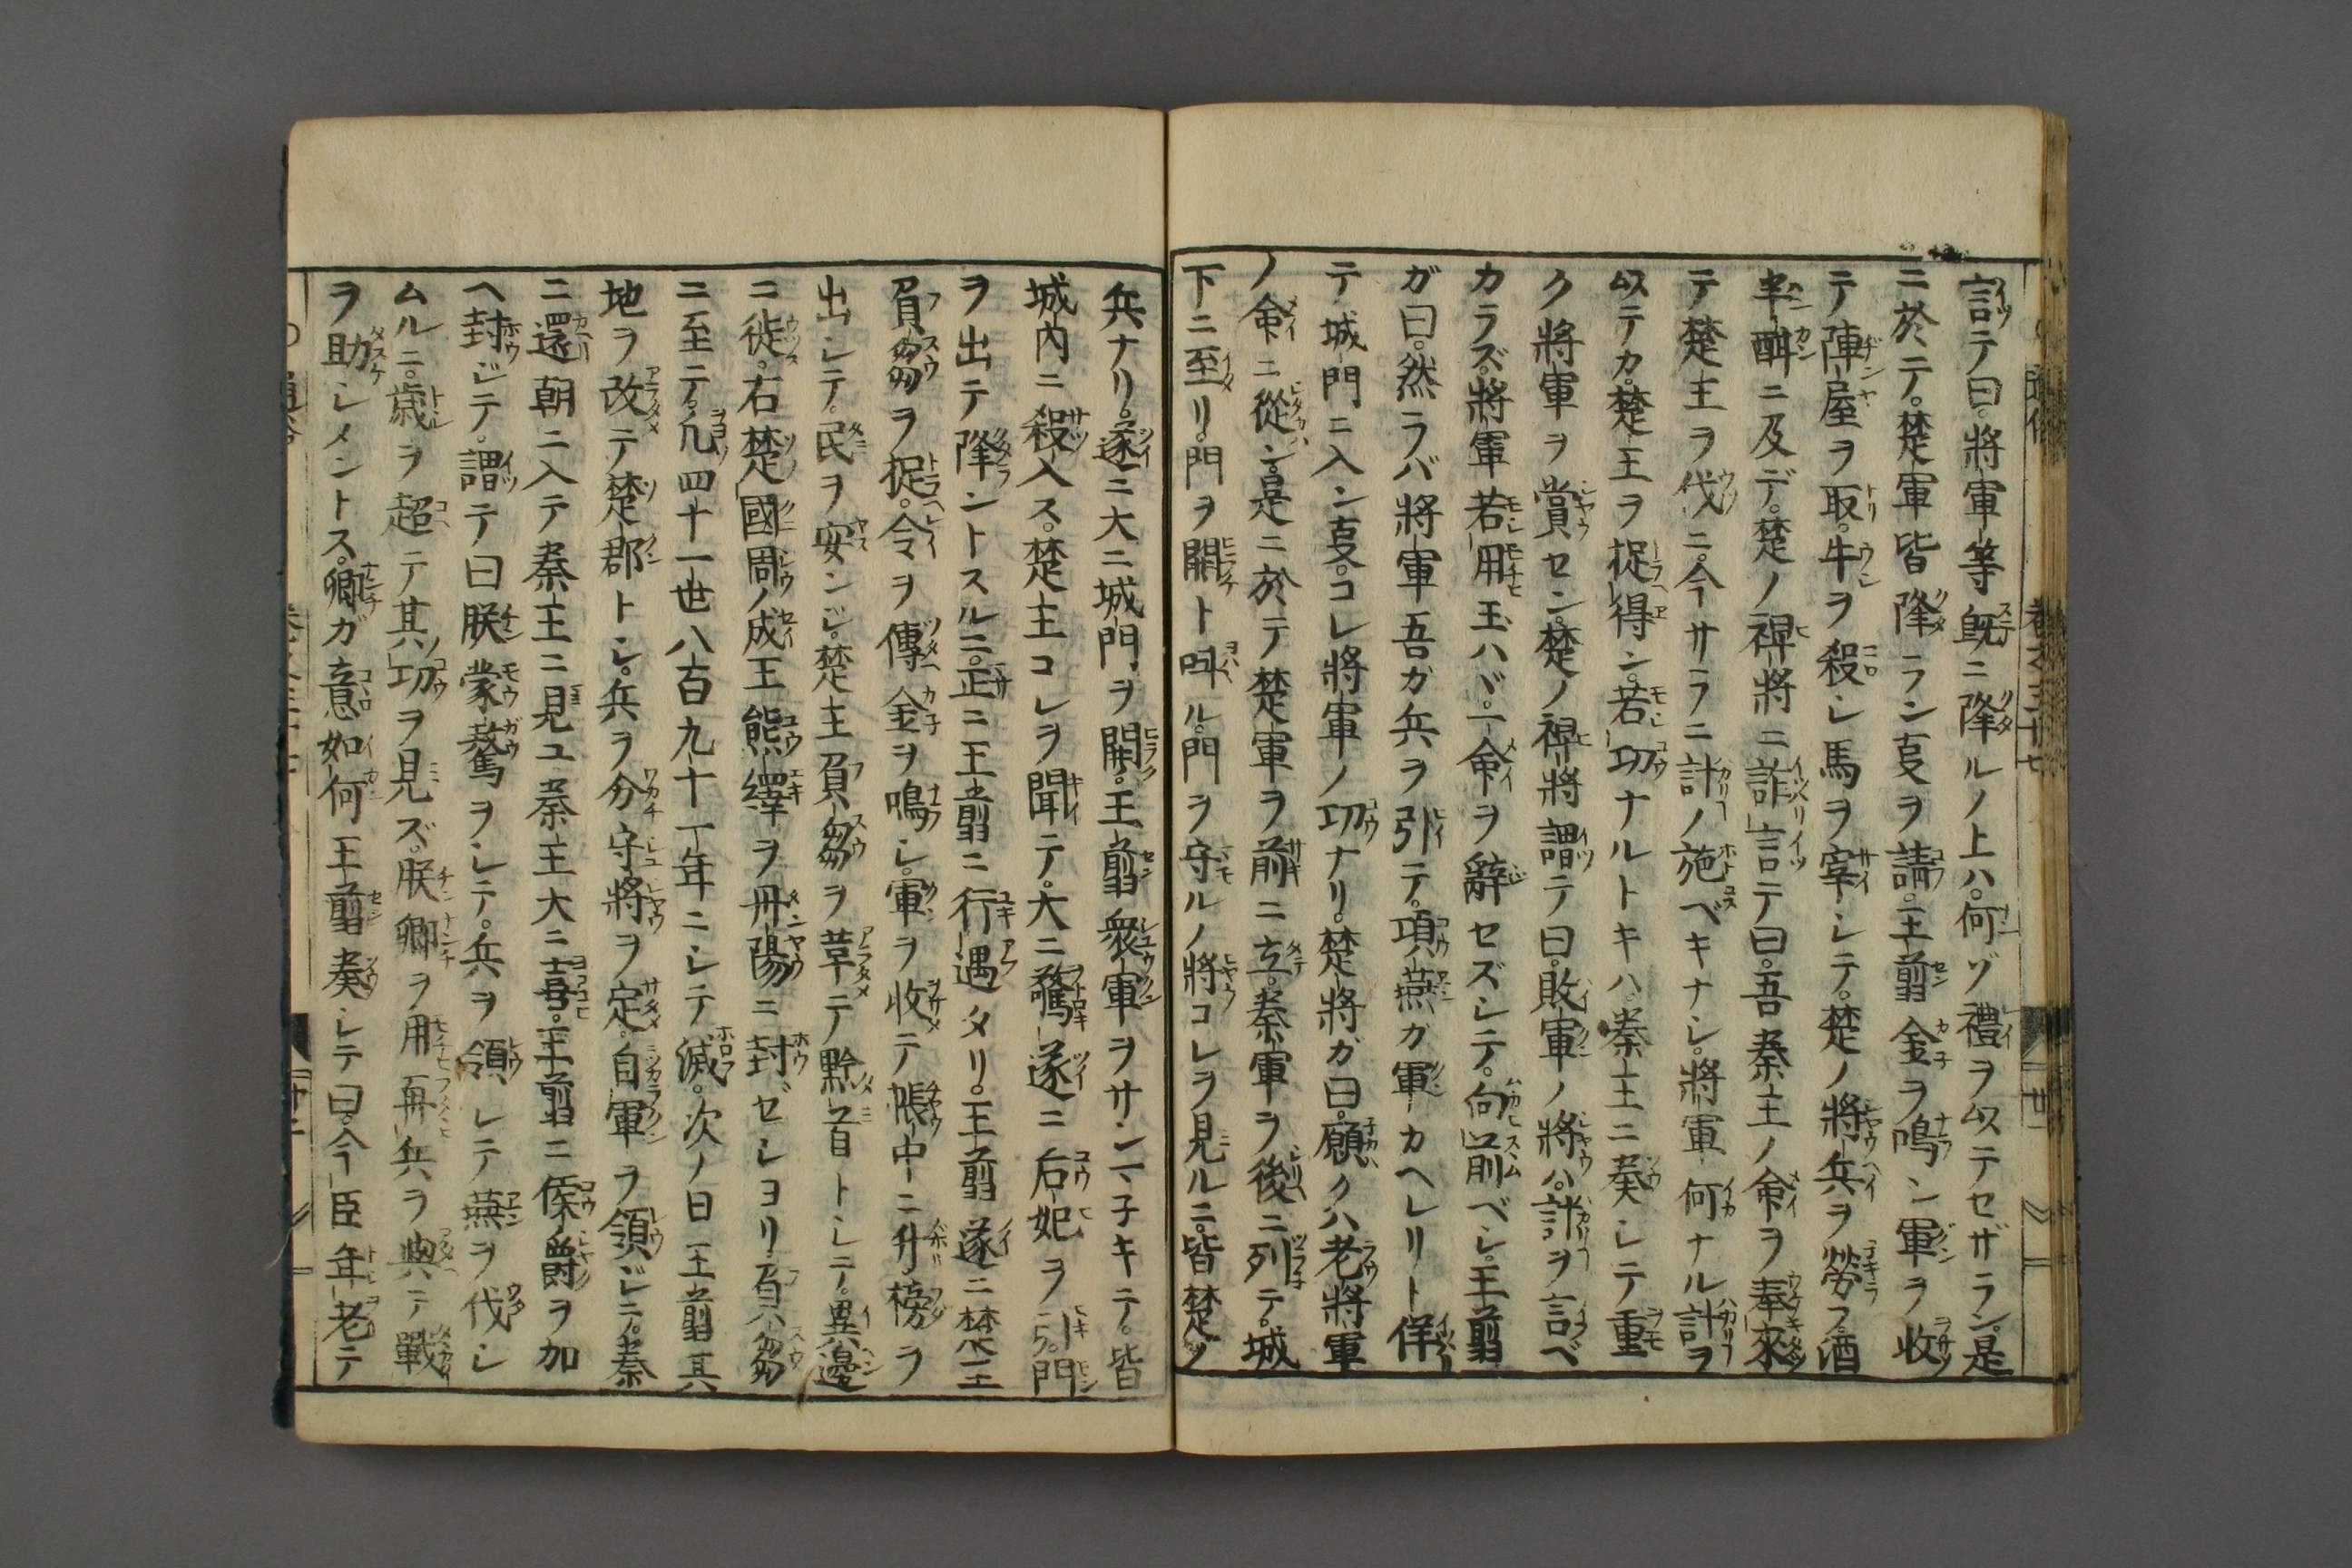 言テ曰。將軍等既ニ降ルノ上ハ。何ゾ禮ヲ以テセザラン。是
ニ於テ。楚軍皆降ラン㕝ヲ請。王翦金ヲ鳴ン軍ヲ收
テ陣屋ヲ取。牛ヲ殺シ馬ヲ宰シテ。楚ノ將兵ヲ勞フ。酒
半酣ニ及デ。楚ノ裨將ニ詐言テ曰。吾秦王ノ命ヲ奉來
テ楚王ヲ伐ニ。今サラニ計ノ施ベキナシ。將軍何ナル計ヲ
以テカ。楚王ヲ捉得ン。若功ナルトキハ。秦王ニ奏シテ重
ク將軍ヲ賞セン。楚ノ裨將謂テ曰。敗軍ノ將ハ。計ヲ言ベ
カラズ。將軍若用玉ハヾ。一命ヲ辭セズシテ。向前ベシ。王翦
ガ曰。然ラバ將軍吾ガ兵ヲ引テ。項燕カ軍カヘレリト佯
テ城門ニ入ン㕝。コレ將軍ノ功ナリ。楚將ガ曰。願クハ老將軍
ノ命ニ從ン。是ニ於テ楚軍ヲ前ニ立。秦軍ヲ後ニ列テ。城
下ニ至リ。門ヲ開ト呌ル。門ヲ守ルノ將コレヲ見ルニ。皆楚ノ
兵ナリ。遂ニ大ニ城門ヲ開。王翦衆軍ヲサシマ子キテ。皆
城内ニ殺入ス。楚王コレヲ聞テ。大ニ驚遂ニ后妃ヲ引。門
ヲ出テ降ントスルニ。正ニ王翦ニ行遇タリ。王翦遂ニ楚王
負芻ヲ捉。令ヲ傳金ヲ鳴シ。軍ヲ收テ帳中ニ升。榜ヲ
出シテ。民ヲ安ンジ。楚王負芻ヲ革テ黔首トシテ。異邊
ニ徙。右楚國周ノ成王熊繹ヲ丹陽ニ封ゼシヨリ。負芻
ニ至テ。凡四十一世八百九十一年ニシテ滅。次ノ日王翦其
地ヲ改テ楚郡トシ。兵ヲ分守將ヲ定。自軍ヲ領ジテ。秦
ニ還朝ニ入テ秦王ニ見ユ秦王大ニ喜。王翦ニ侯爵ヲ加
ヘ封ジテ。謂テ曰朕蒙驁ヲシテ。兵ヲ領シテ燕ヲ伐シ
ムルニ。歳ヲ超テ其功ヲ見ズ。朕卿ヲ用再兵ヲ與テ戰
ヲ助シメントス。卿ガ意如何王翦奏シテ曰。今臣年老テ